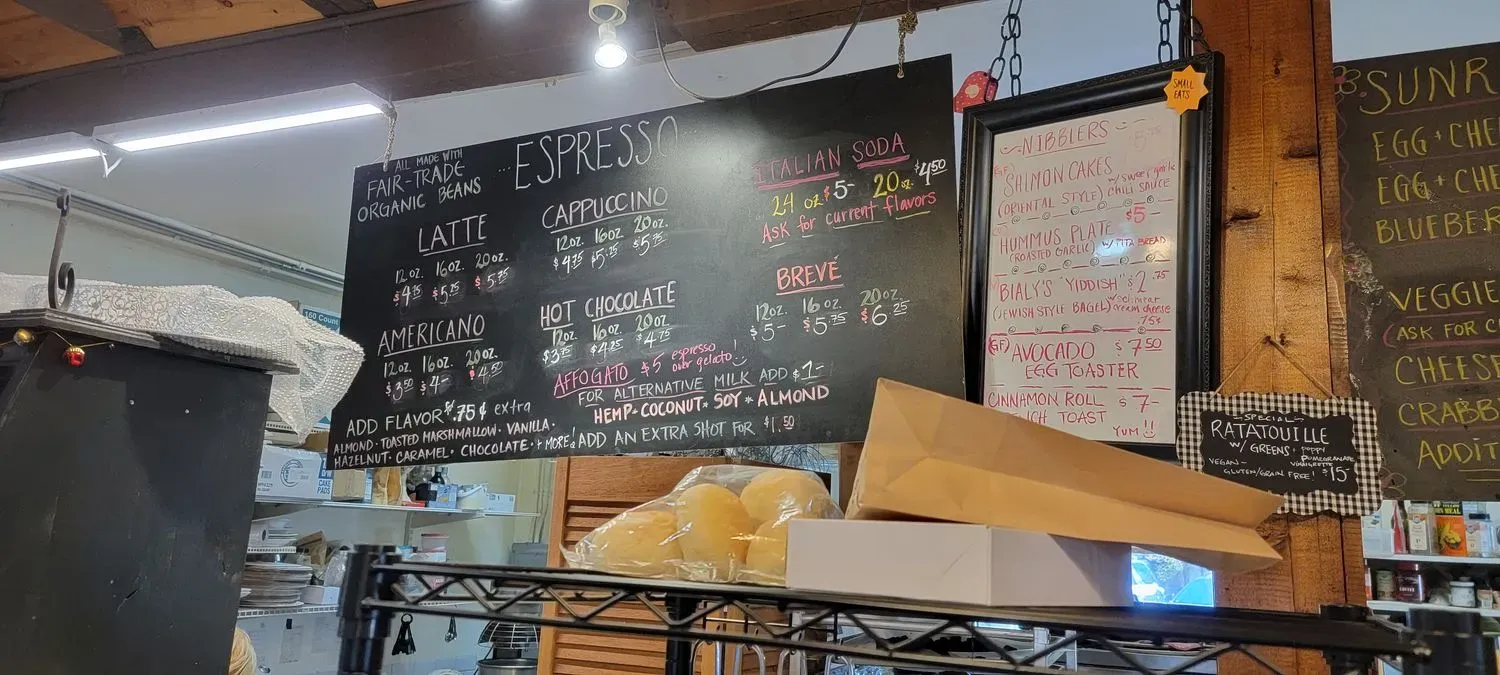 ALL MADE WITH
FAIR-TRADE
ORGANIC BEANS
ESPRESSO
LATTE
12oz. 16oz. 20oz.
$4.75 $5.25 $5.75
AMERICANO
12oz. 16oz. 20oz.
$3.50 $4- $4.50
ADD FLAVOR .75¢ extra
ALMOND · TOASTED MARSHMALLOW · VANILLA ·
HAZELNUT · CARAMEL · CHOCOLATE · + MORE!
CAPPUCCINO
12oz. 16oz. 20oz.
$4.75 $5.25 $5.75
HOT CHOCOLATE
12oz 16oz. 20oz
$3.75 $4.25 $4.75
AFFOGATO $5 espresso
over gelato!
FOR ALTERNATIVE MILK ADD $1-
HEMP * COCONUT * SOY * ALMOND
ADD AN EXTRA SHOT FOR $1.50
ITALIAN SODA
24 oz $5- 20 oz. $4.50
Ask for current flavors
BREVÉ
12oz. 16oz. 20oz.
$5- $5.75 $6.25
SMALL
EATS
NIBBLERS
SHIMON CAKES
(ORIENTAL STYLE) w/ sweet garlic
CHILI SAUCE
$5-
HUMMUS PLATE
(ROASTED GARLIC) w/ PITA BREAD
BIALY'S "YIDDISH" $2.75
(JEWISH STYLE BAGEL)
cream cheese
.75¢
(GF) AVOCADO $7.50
EGG TOASTER
CINNAMON ROLL $7-
TOAST
YUM!!
SPECIAL
RATATOUILLE
W/ GREENS + POPPY
POMEGRANATE
VEGAN - VINAIGRETTE
GLUTEN/GRAIN FREE! $15-
SUNR
EGG + CHE
EGG + CHE
BLUEBER
VEGGIE
(ASK FOR C
CHEESE
CRABB
ADDIT
160 Count